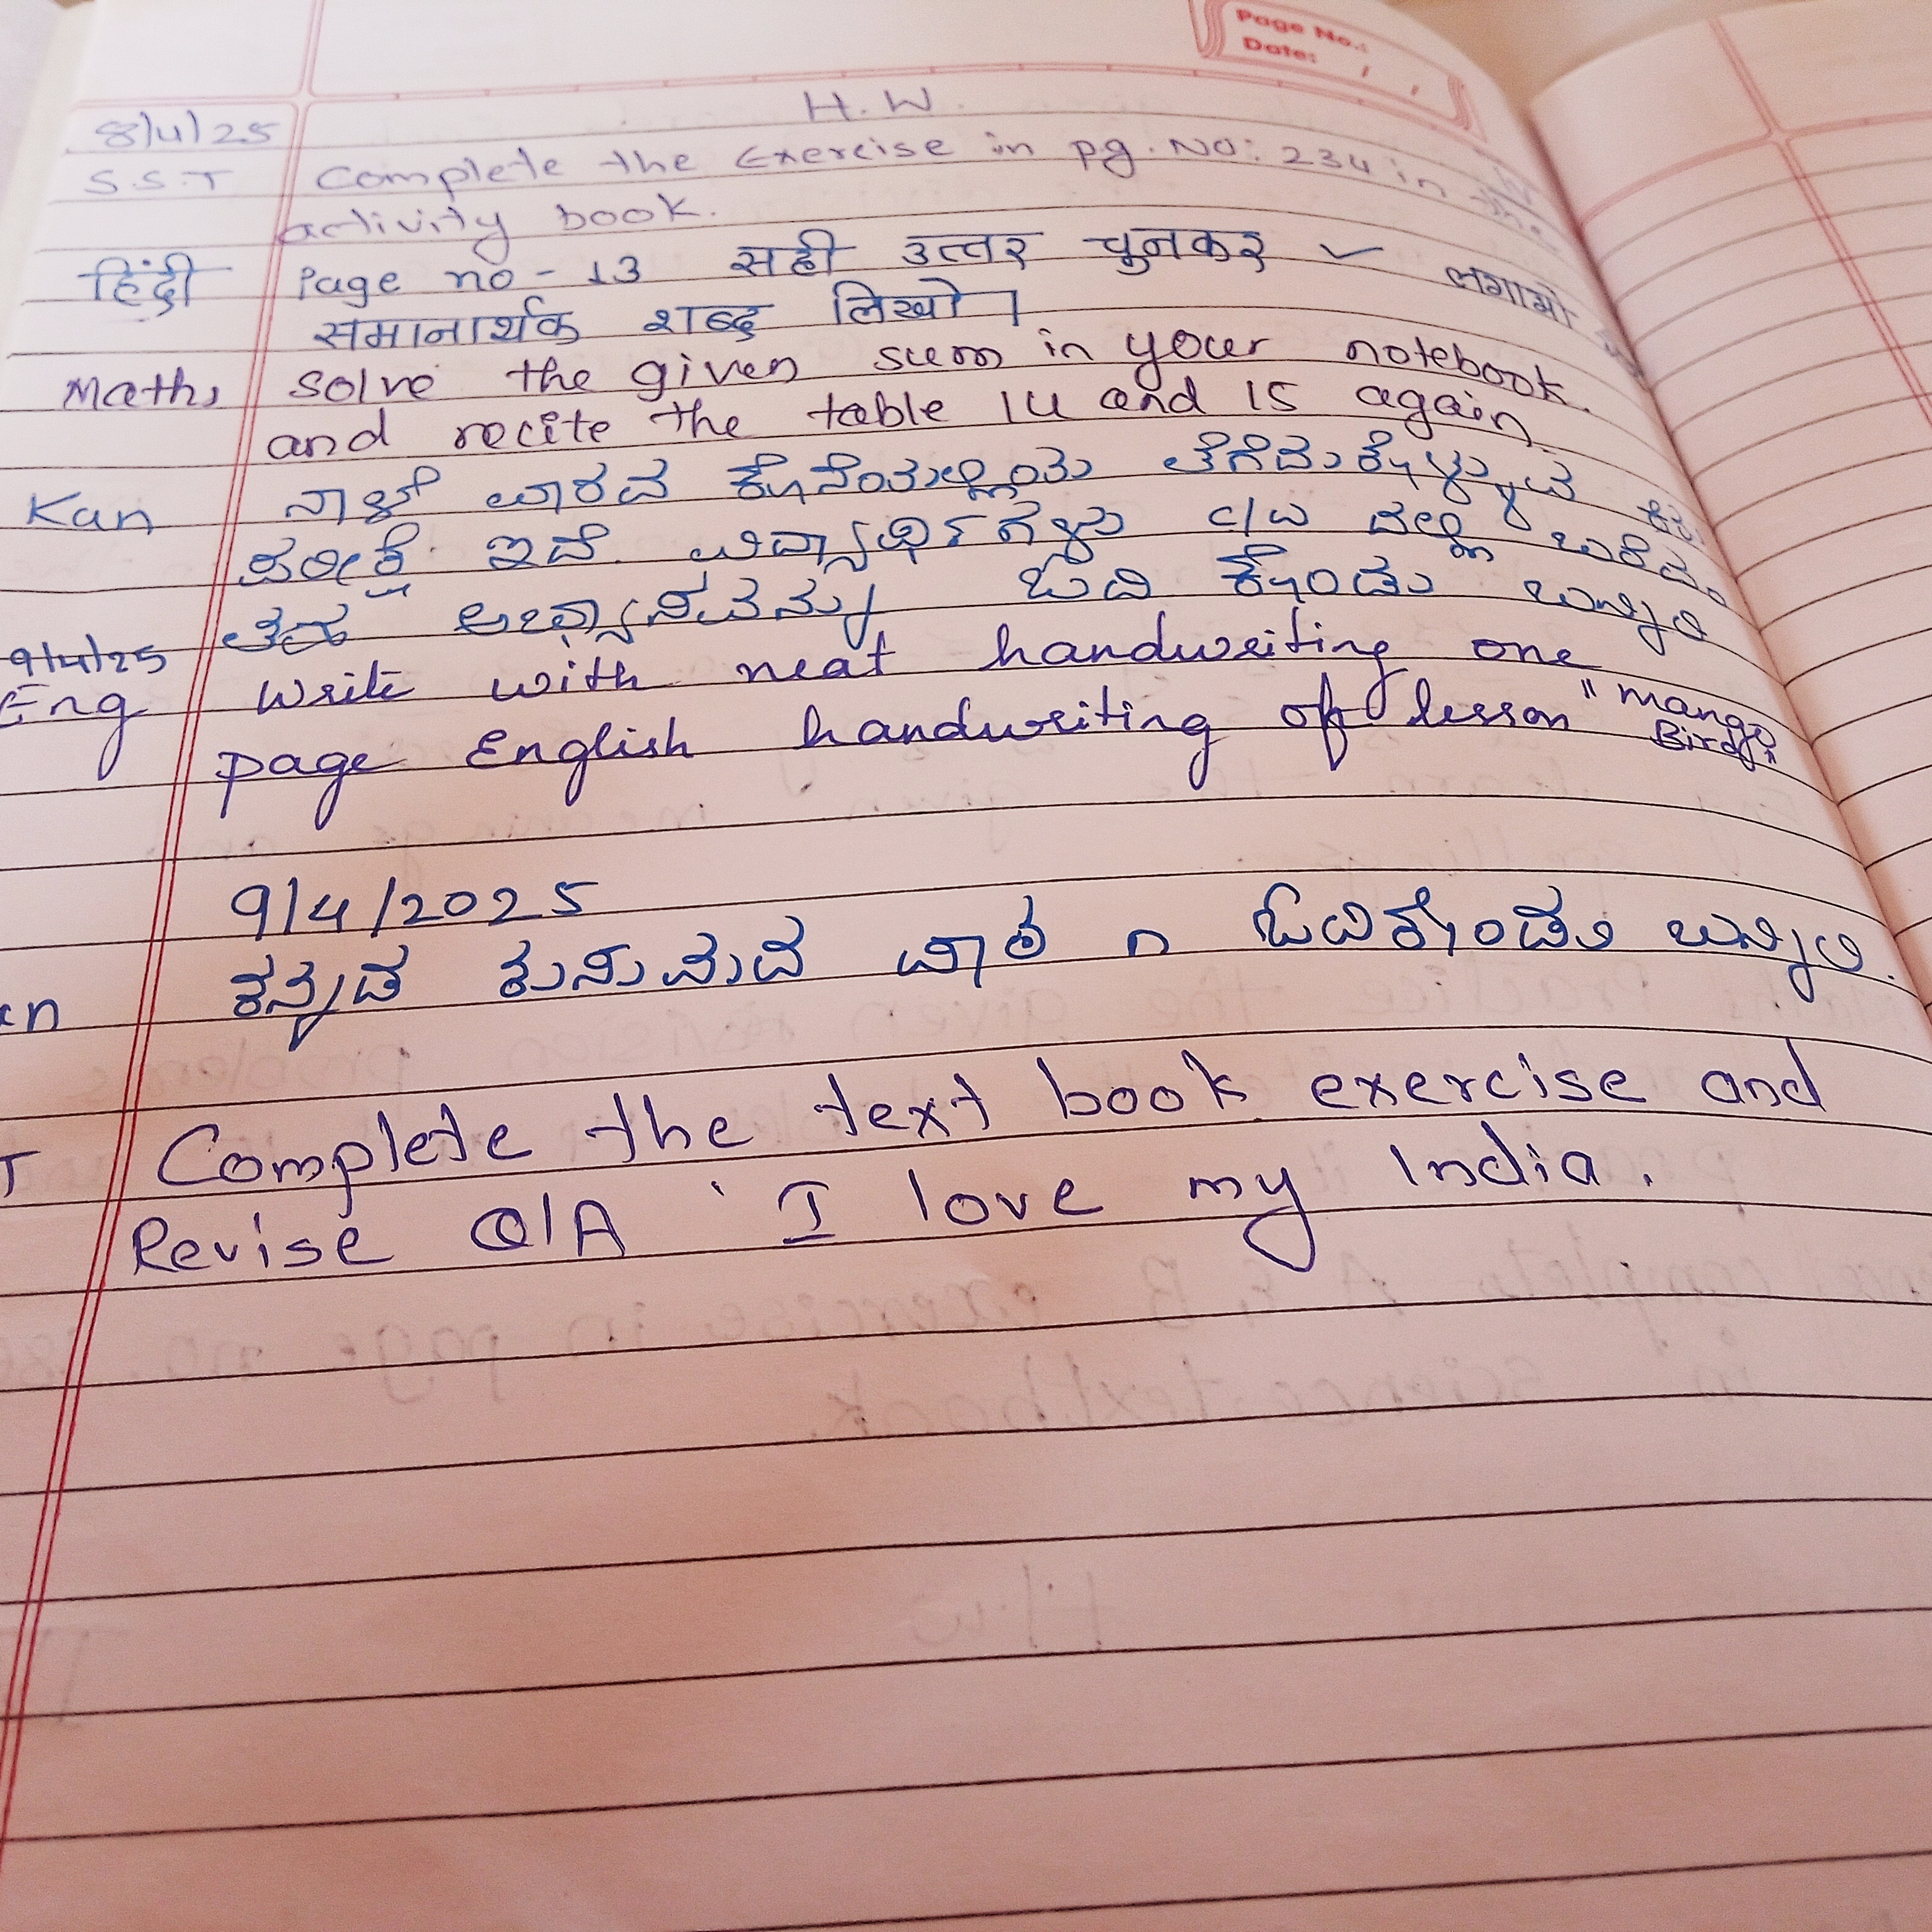 Page No.:
Date: / /
H.W.
8/4/25
S.S.T Complete the Exercise in pg. NO: 234 in the
activity book.
हिंदी Page no - 13 सही उत्तर चुनकर ✓ लगाओ
समानार्थक शब्द लिखो।
Maths solve the given sum in your notebook.
and recite the table 14 and 15 again
Kan ನಾಳೆ ವಾರದ ಕೊನೆಯಲ್ಲಿಯ ತೆಗೆದುಕೊಳ್ಳುವ
ಪರೀಕ್ಷೆ ಇದೆ. ವಿದ್ಯಾರ್ಥಿಗಳು c/w ದಲ್ಲಿ
ಅಭ್ಯಾಸವನ್ನು ಓದಿ ಕೊಂಡು ಬನ್ನಿರಿ
9/4/25
Eng Write with neat handwriting one
page English handwriting of lesson "Mango
Bird"
9/4/2025
ಕನ್ನಡ ಕುಸುಮದ ಪಾಠ ೧ ಓದಿಕೊಂಡು ಬನ್ನಿರಿ.
T Complete the text book exercise and
Revise Q/A ' I love my India.